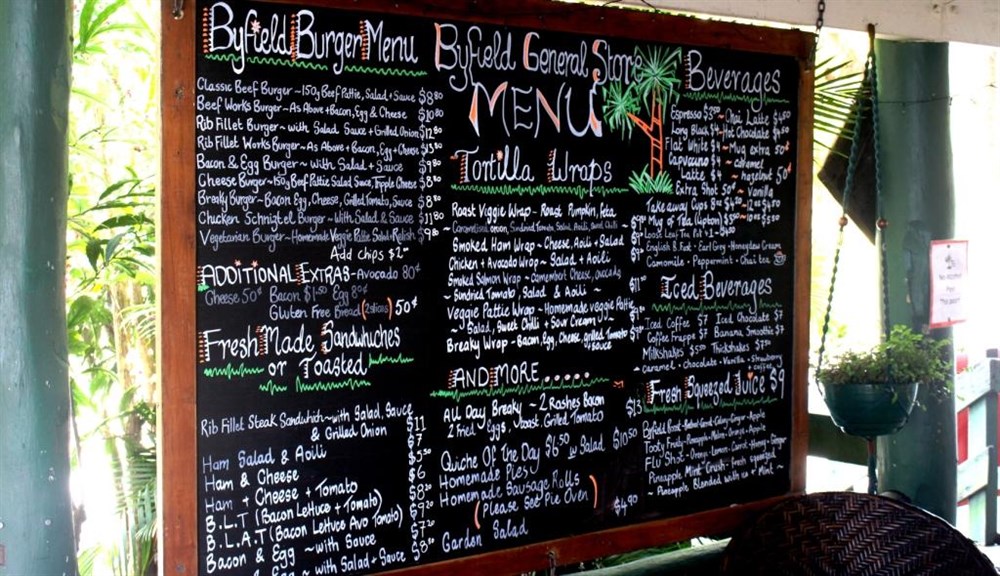 Byfield Burger Menu
Classic Beef Burger - 150g Beef Pattie, Salad + Sauce $8.80
Beef Works Burger - As Above + Bacon, Egg & Cheese $10.80
Rib Fillet Burger ~ with Salad Sauce + Grilled Onion $12.80
Rib Fillet Works Burger ~ As Above + Bacon, Egg + Cheese
Bacon & Egg Burger ~ with Salad + Sauce $9.80
Cheese Burger ~ 150g Beef Pattie Salad Sauce, Tripple Cheese
Breaky Burger - Bacon Egg, Cheese, Grilled Tomato, Sauce
Chicken Schnigtel Burger ~ With Salad & Sauce $11.80
Vegetarian Burger ~ Homemade Veggie Pattie Salad + Relish
Add chips $2
ADDITIONAL EXTRAS - Avocado 80¢
Cheese 50¢ Bacon $1.50 Egg 80¢
Gluten Free Bread (2 slices) 50¢
Fresh Made Sandwiches
or Toasted
Rib Fillet Steak Sandwich ~ with Salad, Sauce
& Grilled Onion $11
Ham Salad & Aoili
Ham & Cheese
Ham + Cheese + Tomato
B.L.T (Bacon Lettuce + Tomato)
B.L.A.T (Bacon Lettuce Avo Tomato)
Bacon & Egg ~ with Sauce
Byfield General Store
MENU
Tortilla Wraps
Roast Veggie Wrap ~ Roast Pumpkin, feta
Caramelised onion, Sundried Tomato, Salad, Aoili, Sweet Chilli
Smoked Ham Wrap ~ Cheese, Aoili + Salad
Chicken + Avocado Wrap ~ Salad + Aoili
Smoked Salmon Wrap ~ Camembert Cheese, avocado
~ Sundried Tomato, Salad & Aoili ~
Veggie Pattie Wrap ~ Homemade veggie Pattie
~ Salad, Sweet Chilli + Sour Cream
Breaky Wrap ~ Bacon, Egg, Cheese, grilled Tomato
+ sauce
AND MORE......
All Day Breaky ~ 2 Rashes Bacon
2 Fried Eggs, Toast, Grilled Tomato $13
Quiche Of the Day $6.50 w Salad $10.50
Homemade Pies
Homemade Sausage Rolls
(Please See Pie Oven)
Garden Salad $4.90
Beverages
Espresso ~ Chai Latte $4.50
Long Black $4 ~ Hot Chocolate
Flat White $4 ~ Mug extra 50¢
Capuccino $4 ~ caramel
Latte $4 ~ hazelnut 50¢
Extra Shot 50¢ ~ Vanilla
Take away Cups
Mug of Tea (Lipton)
Loose Leaf Tea Pot
English B.Fast - Earl Grey - Honeydew Green
Camomile - Peppermint - Chai tea
Iced Beverages
Iced Coffee $7 Iced Chocolate $7
Coffee Frappe $7 Banana Smoothie
Milkshakes Thickshakes
~ Caramel - Chocolate - Vanilla - Strawberry
coffee
Fresh Squeezed Juice $9
Tooty Fruity - Pineapple - Apple
Flu Shot - Orange - Lemon - Carrot - Honey - Ginger
Pineapple Mint Crush - fresh squeezed
~ Pineapple Blended with ice + Mint ~